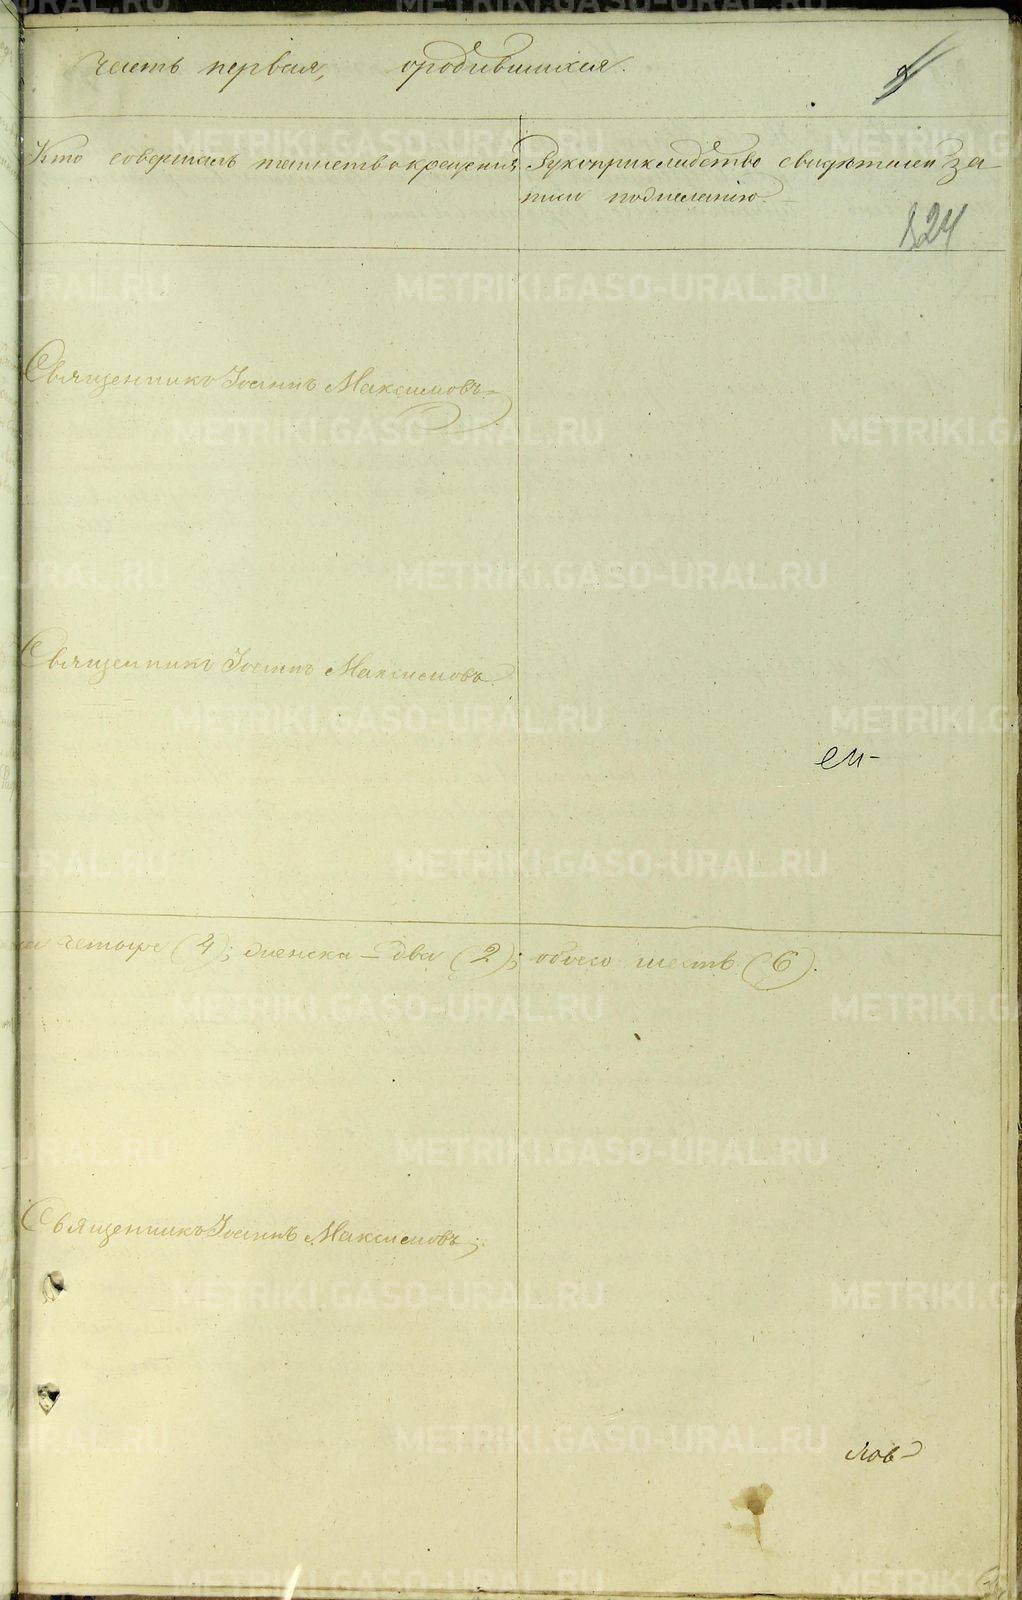 часть первая, ородившихся.
Кто совершалъ таинство крещения Рукоприкладство свидѣтелей за-
писи пожеланію.
124
Священникъ Іоаннъ Максимовъ
Священникъ Іоаннъ Максимовъ.
ем-
четыре (4); женска - два (2); обоего шесть (6).
Священникъ Іоаннъ Максимовъ;
лов-
METRIKI.GASO-URAL.RU